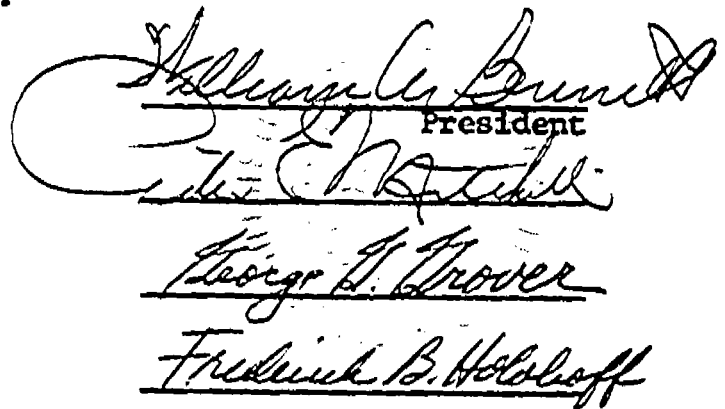 William M. Bennett
President
Peter E. Mitchell
George G. Grover
Frederick B. Holoboff